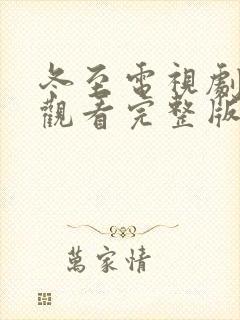 冬至電視劇
觀看完整版
萬家情